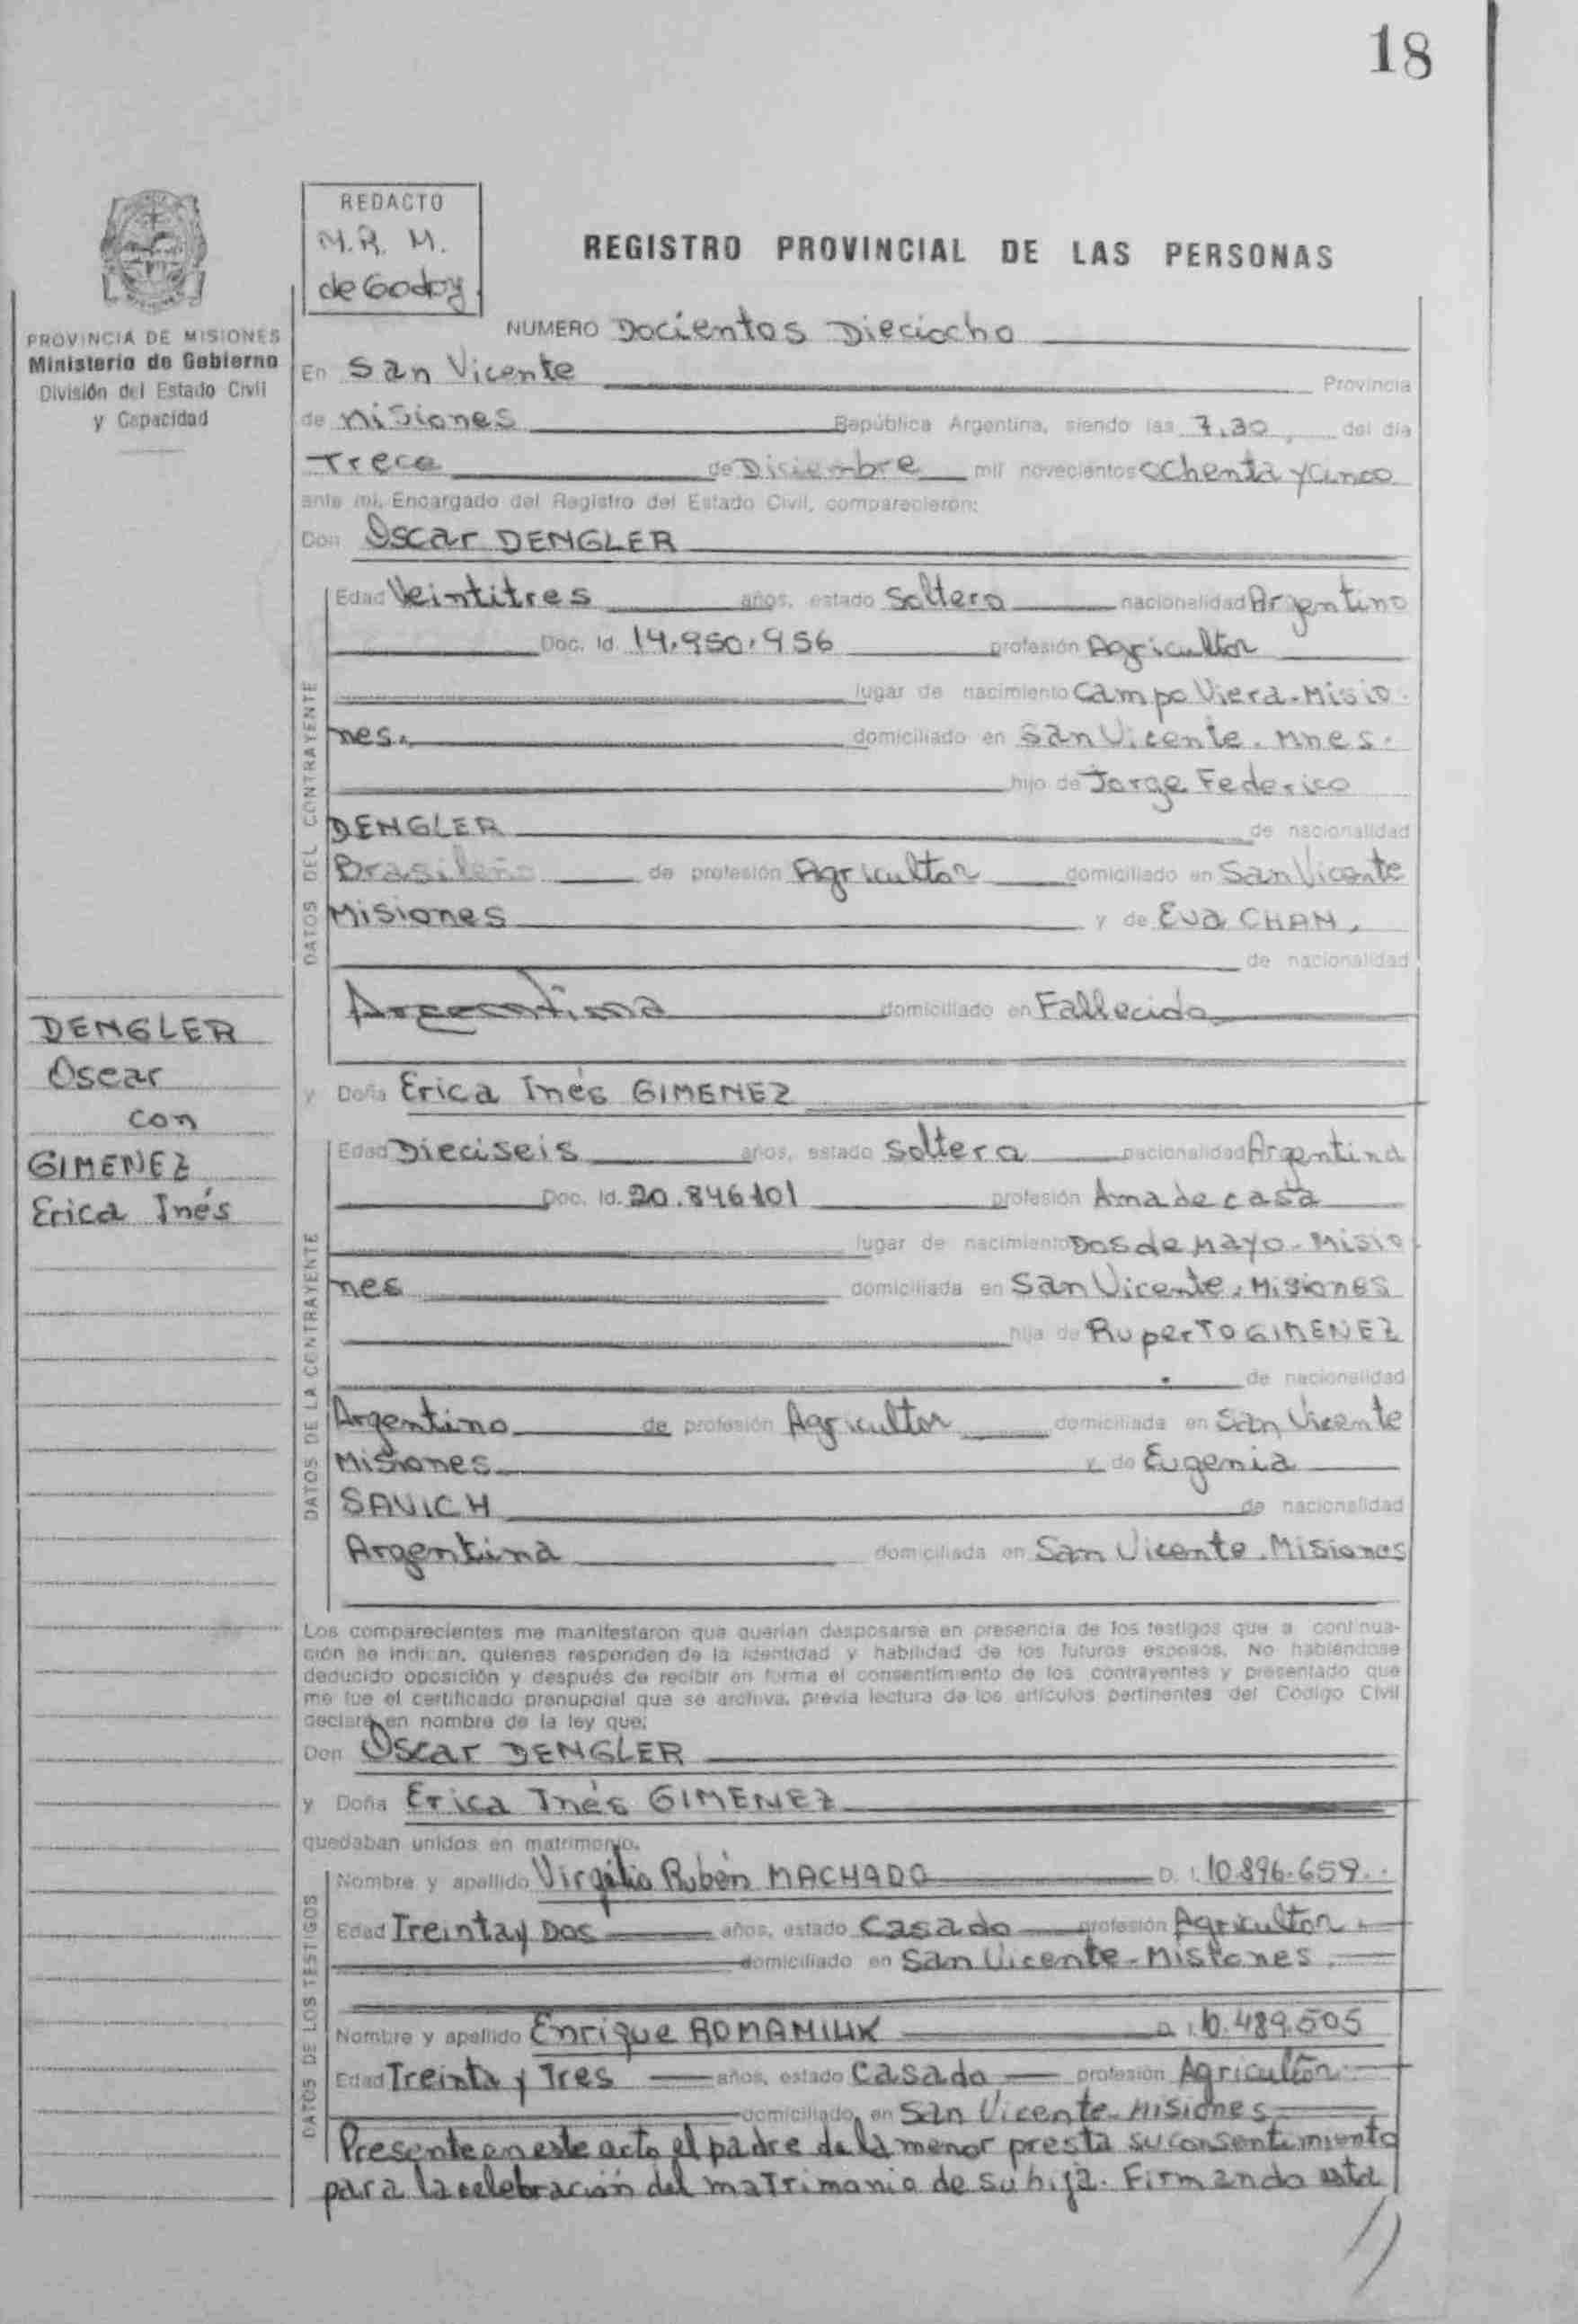 18
REDACTO
M.R. M.
de Godoy
REGISTRO PROVINCIAL DE LAS PERSONAS
PROVINCIA DE MISIONES
Ministerio de Gobierno
División del Estado Civil
y Capacidad
NUMERO Docientos Dieciocho
En San Vicente Provincia
de Misiones República Argentina, siendo las 7,30 del día
Trece de Diciembre mil novecientos ochenta y cinco
ante mí, Encargado del Registro del Estado Civil, comparecieron:
Don Oscar DENGLER
DATOS DEL CONTRAYENTE
Edad Veintitres años, estado Soltero nacionalidad Argentino
Doc. Id. 14.950.956 profesión Agricultor
lugar de nacimiento Campo Viera-Misio
nes. domiciliado en San Vicente. Mnes.
hijo de Jorge Federico
DENGLER de nacionalidad
Brasileño de profesión Agricultor domiciliado en San Vicente
Misiones y de Eva CHAN,
de nacionalidad
Argentina domiciliado en Fallecida
DENGLER
Oscar
con
GIMENEZ
Erica Inés
y Doña Erica Inés GIMENEZ
DATOS DE LA CONTRAYENTE
Edad Dieciseis años, estado Soltera nacionalidad Argentina
Doc. Id. 20.846.101 profesión Ama de casa
lugar de nacimiento Dos de Mayo-Misio
nes domiciliada en San Vicente, Misiones
hija de Ruperto GIMENEZ
de nacionalidad
Argentino de profesión Agricultor domiciliada en San Vicente
Misiones y de Eugenia
SAVICH de nacionalidad
Argentina domiciliada en San Vicente. Misiones
Los comparecientes me manifestaron que querían desposarse en presencia de los testigos que a continua-
ción se indican, quienes responden de la identidad y habilidad de los futuros esposos. No habiéndose
deducido oposición y después de recibir en forma el consentimiento de los contrayentes y presentado que
me fue el certificado prenupcial que se archiva, previa lectura de los artículos pertinentes del Código Civil
declaré en nombre de la ley que:
Don Oscar DENGLER
y Doña Erica Inés GIMENEZ
quedaban unidos en matrimonio.
DATOS DE LOS TESTIGOS
Nombre y apellido Virgilio Rubén MACHADO D. I. 10.896.659.
Edad Treinta y Dos años, estado Casado profesión Agricultor
domiciliado en San Vicente-Misiones.
Nombre y apellido Enrique ROMANIUK D. I. 10.489.505
Edad Treinta y Tres años, estado Casado profesión Agricultor
domiciliado en San Vicente-Misiones
Presente en este acto el padre de la menor presta su consentimiento
para la celebración del matrimonio de su hija. Firmando esta